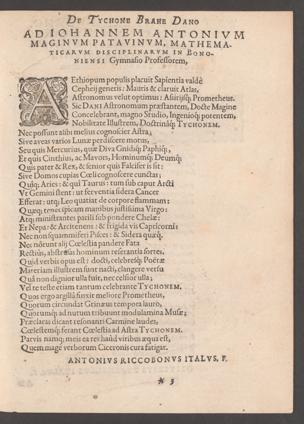 DE TYCHONE BRAHE DANO
AD IOHANNEM ANTONIVM
MAGINVM PATAVINVM, MATHEMA-
TICARVM DISCIPLINARVM IN BONO-
NIENSI Gymnasio Professorem,
AEthiopum populis placuit Sapientia valdè
Cepheij genetis: Mauris & claruit Atlas,
Astronomus velut optimus: Assirijsq́; Prometheus.
Sic DANI Astronomum præstantem, Docte Magine
Concelebrant, magno Studio, Ingenioq́; potentem,
Nobilitate Illustrem, Doctrinâq́; TYCHONEM.
Nec possunt alibi melius cognoscier Astra;
Sive aveas varios Lunæ perdiscere motus,
Seu quis Mercurius, quæ Diva Gnidusq́; Paphusq́;,
Et quis Cinthius, ac Mavors, Hominumq́; Deumq́;
Quis pater & Rex, & senior quis Falcifer is sit:
Sive Domos cupias Cœli cognoscere cunctas;
Quiq́; Aries: & qui Taurus: tum sub caput Arcti
Vt Gemini stent: ut ferventia sidera Cancer
Efferat: utq́; Leo quatiat de corpore flammam:
Quæq; tenet spicam manibus justissima Virgo:
Atq; ministrantes parili sub pondere Chelæ:
Et Nepa: & Arcitenens: & frigida vis Capricorni:
Nec non squammiferi Pisces: & Sidera quæq́;
Nec nôrunt alij Cœlestia pandere Fata
Rectius, abstrusas hominum reserantia sortes.
Quid verbis opus est? docti, celebresq́; Poëtæ
Materiam illustrem sunt nacti, clangere versu
Quâ non dignior ulla fuit, nec celsior ulla;
Vel te teste etiam tantum celebrante TYCHONEM.
Quos ergo argillâ finxit meliore Prometheus,
Quorum circundat Grinæus tempora laurus,
Quorumq́; ad nutum tribuunt modulamina Musæ;
Præclaras dicant resonanti Carmine laudes,
Cœlestemq́; ferant Cœlestia ad Astra TYCHONEM.
Parvis namq́; meis ea res haud viribus æqua est,
Quem magè verborum Ciceronis cura fatigat.
ANTONIVS RICCOBONVS ITALVS, F.
3